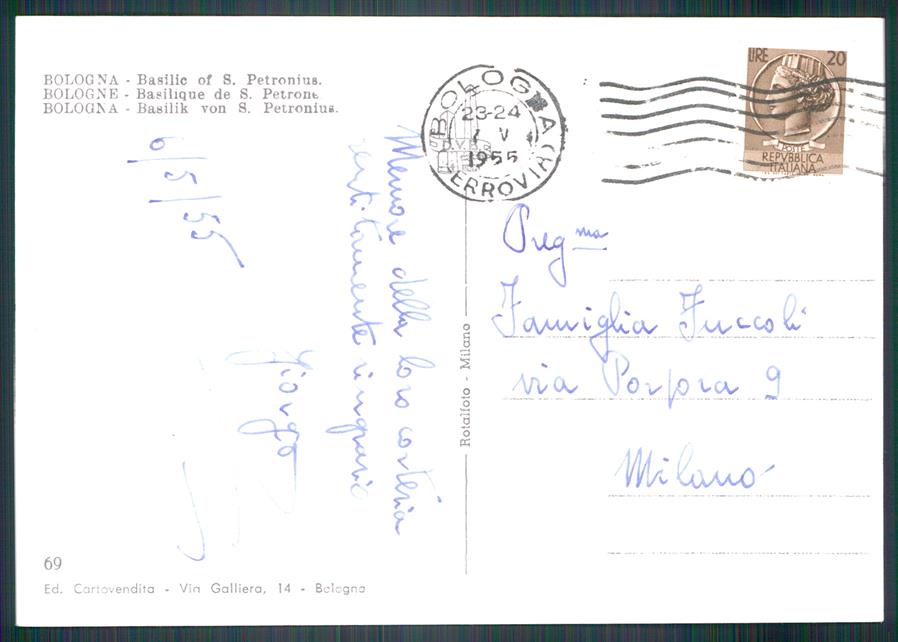 BOLOGNA - Basilic of S. Petronius.
BOLOGNE - Basilique de S. Petrone
BOLOGNA - Basilik von S. Petronius.
6/5/55
Memore della loro cortesia
sentitamente ringrazio
Giorgio
69
Ed. Cartovendita - Via Galliera, 14 - Bologna
Rotalfoto - Milano
BOLOGNA
23-24
7 V
1955
FERROVIA
LIRE 20
POSTE
REPVBBLICA
ITALIANA
Preg ma
Famiglia Fuccoli
via Porpora 9
Milano